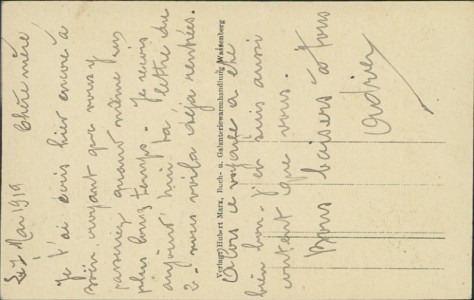 Le 7 Mai 1919
Chère mère
Je t'ai écris hier encore à
soin croyant que vous y
passeriez quand même plus
plus longtemps. Je reçois
aujourd'hui ta lettre du
2. vous voilà déjà rentrées.
Alors le voyage a été
bien bon. J'en suis aussi
content que vous.
Bons baisers à tous
Verlag: Hubert Marx, Buch- u. Galanteriewarenhandlung Wassenberg